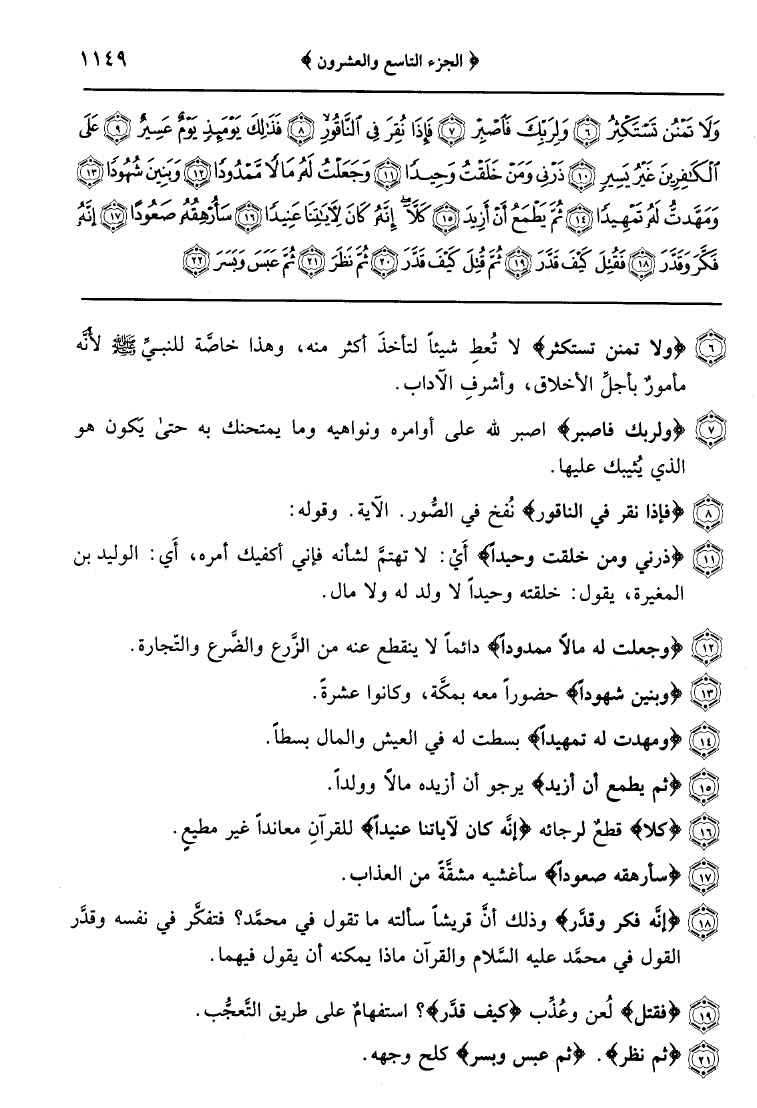 ﴿ الجزء التاسع والعشرون ﴾ ١١٤٩
وَلَا تَمْنُن تَسْتَكْثِرُ ٦ وَلِرَبِّكَ فَاصْبِرْ ٧ فَإِذَا نُقِرَ فِي النَّاقُورِ ٨ فَذَٰلِكَ يَوْمَئِذٍ يَوْمٌ عَسِيرٌ ٩ عَلَى
الْكَافِرِينَ غَيْرُ يَسِيرٍ ١٠ ذَرْنِي وَمَنْ خَلَقْتُ وَحِيدًا ١١ وَجَعَلْتُ لَهُ مَالًا مَّمْدُودًا ١٢ وَبَنِينَ شُهُودًا ١٣
وَمَهَّدتُّ لَهُ تَمْهِيدًا ١٤ ثُمَّ يَطْمَعُ أَنْ أَزِيدَ ١٥ كَلَّا ۖ إِنَّهُ كَانَ لِآيَاتِنَا عَنِيدًا ١٦ سَأُرْهِقُهُ صَعُودًا ١٧ إِنَّهُ
فَكَّرَ وَقَدَّرَ ١٨ فَقُتِلَ كَيْفَ قَدَّرَ ١٩ ثُمَّ قُتِلَ كَيْفَ قَدَّرَ ٢٠ ثُمَّ نَظَرَ ٢١ ثُمَّ عَبَسَ وَبَسَرَ ٢٢
٦ ﴿ولا تمنن تستكثر﴾ لا تُعطِ شيئاً لتأخذَ أكثر منه، وهذا خاصَّة للنبيِّ ﷺ لأنَّه
مأمورٌ بأجلِّ الأخلاق، وأشرفِ الآداب.
٧ ﴿ولربك فاصبر﴾ اصبر لله على أوامره ونواهيه وما يمتحنك به حتىٰ يَكون هو
الذي يُثيبك عليها.
٨ ﴿فإذا نقر في الناقور﴾ نُفخ في الصُّور. الآية. وقوله:
١١ ﴿ذرني ومن خلقت وحيداً﴾ أَيْ: لا تهتمَّ لشأنه فإني أكفيك أمره، أَي: الوليد بن
المغيرة، يقول: خلقته وحيداً لا ولد له ولا مال.
١٢ ﴿وجعلت له مالاً ممدوداً﴾ دائماً لا ينقطع عنه من الزَّرع والضَّرع والتّجارة.
١٣ ﴿وبنين شهوداً﴾ حضوراً معه بمكَّة، وكانوا عشرةً.
١٤ ﴿ومهدت له تمهيداً﴾ بسطت له في العيش والمال بسطاً.
١٥ ﴿ثم يطمع أن أزيد﴾ يرجو أن أزيده مالاً وولداً.
١٦ ﴿كلا﴾ قطعٌ لرجائه ﴿إنَّه كان لآياتنا عنيداً﴾ للقرآنِ معانداً غير مطيعٍ.
١٧ ﴿سأرهقه صعوداً﴾ سأغشيه مشقَّةً من العذاب.
١٨ ﴿إنَّه فكر وقدَّر﴾ وذلك أنَّ قريشاً سألته ما تقول في محمَّد؟ فتفكَّر في نفسه وقدَّر
القول في محمَّد عليه السَّلام والقرآن ماذا يمكنه أن يقول فيهما.
١٩ ﴿فقتل﴾ لُعن وعُذِّب ﴿كيف قدَّر﴾؟ استفهامٌ على طريق التَّعجُّب.
٢١ ﴿ثم نظر﴾. ﴿ثم عبس وبسر﴾ كلح وجهه.